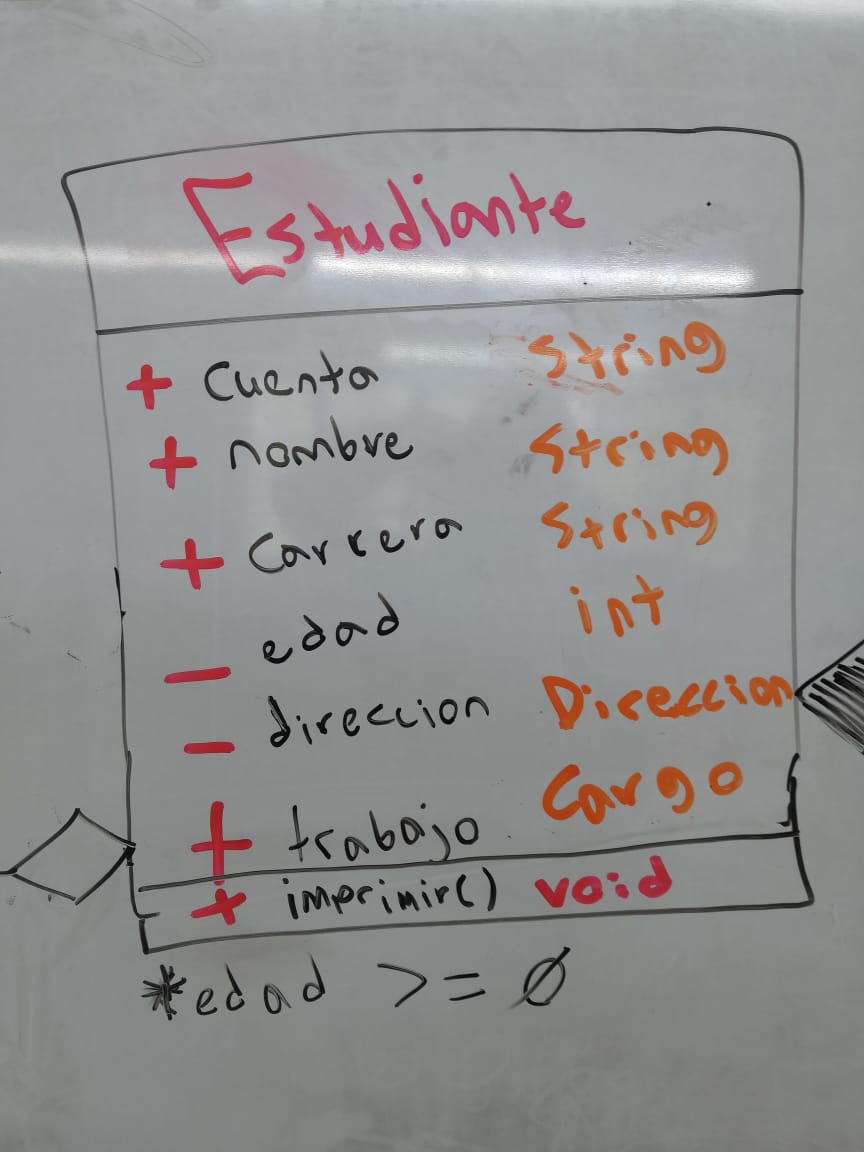 Estudiante
+ Cuenta String
+ nombre String
+ Carrera String
- edad int
- direccion Direccion
+ trabajo Cargo
+ imprimir() void
*edad >= 0